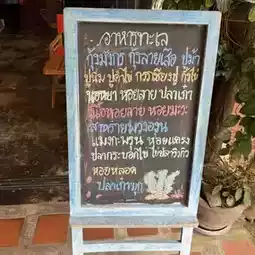 อาหารทะเล
กุ้งมังกร กุ้งลายเสือ ปูม้า
ปูนิ่ม ปูดำไข่ กุ้งไข่
หอยลาย ปลาเก๋า
หอยลาย หอยมะระ
สาหร่ายพวงองุ่น
แมงกะพรุน หอยแครง
ปลากระบอกไข่
หอยหลอด
ปลาเก๋า